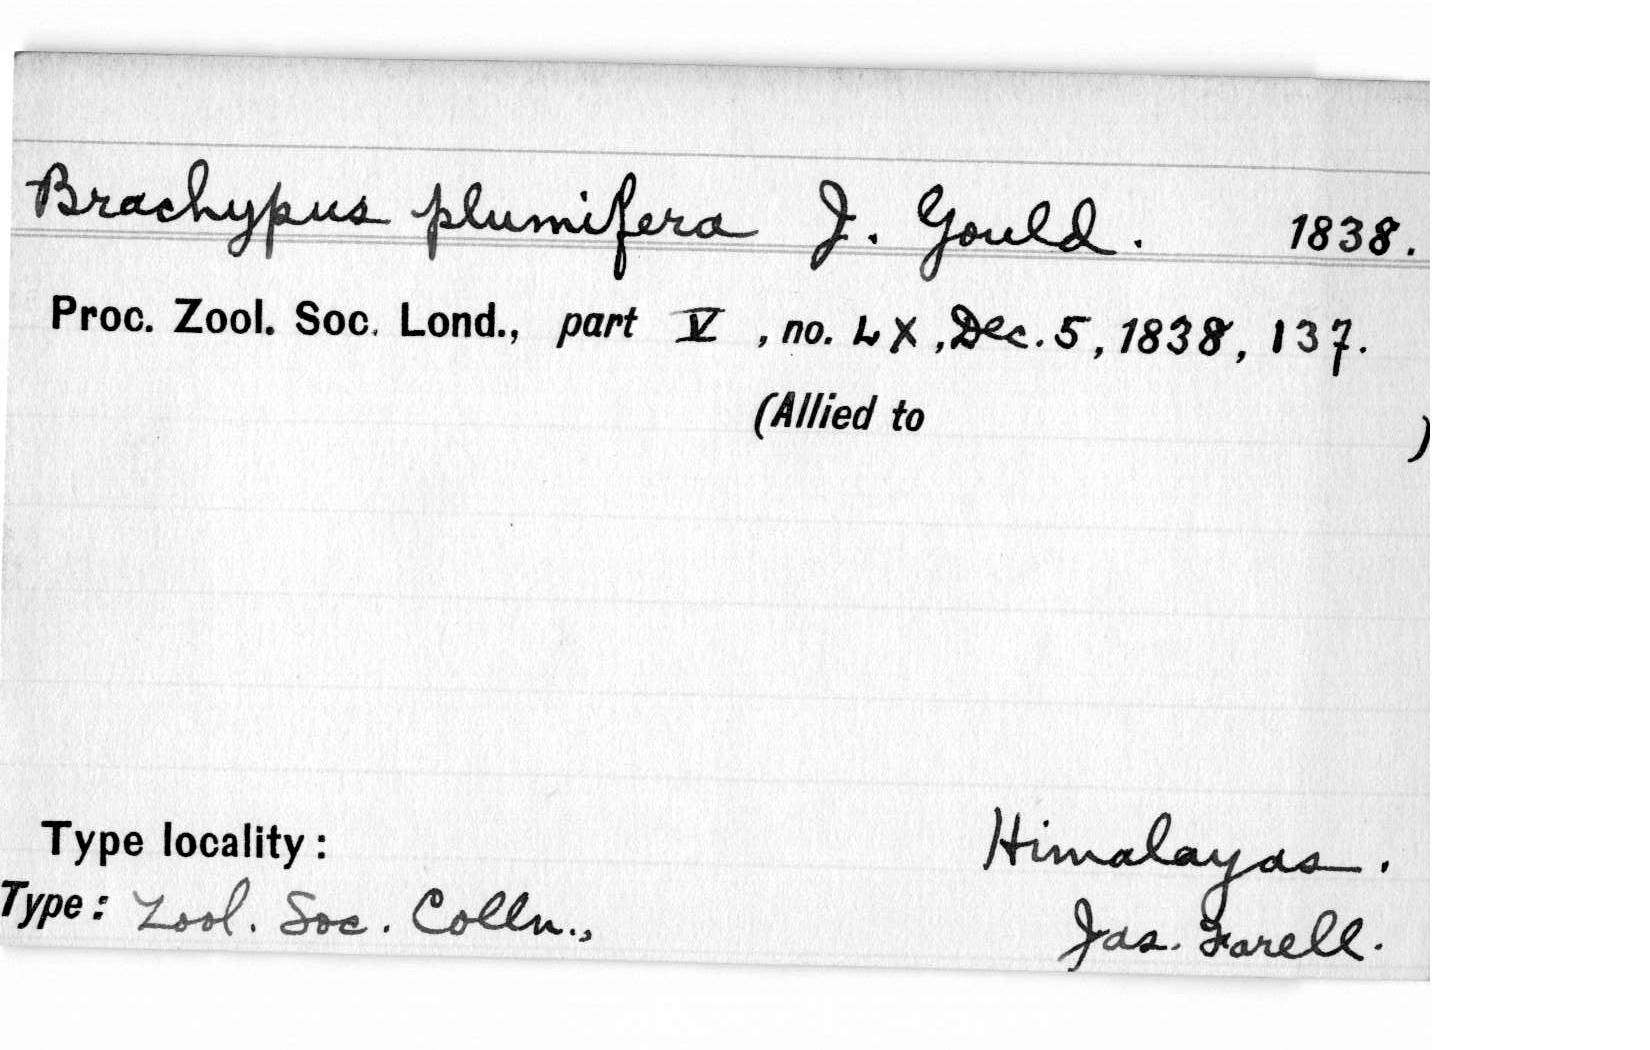 Brachypus plumifera J. Gould. 1838.
Proc. Zool. Soc. Lond., part V, no. LX, Dec. 5, 1838, 137.
(Allied to )
Type locality: Himalayas.
Type: Zool. Soc. Colln., Jas. Farell.